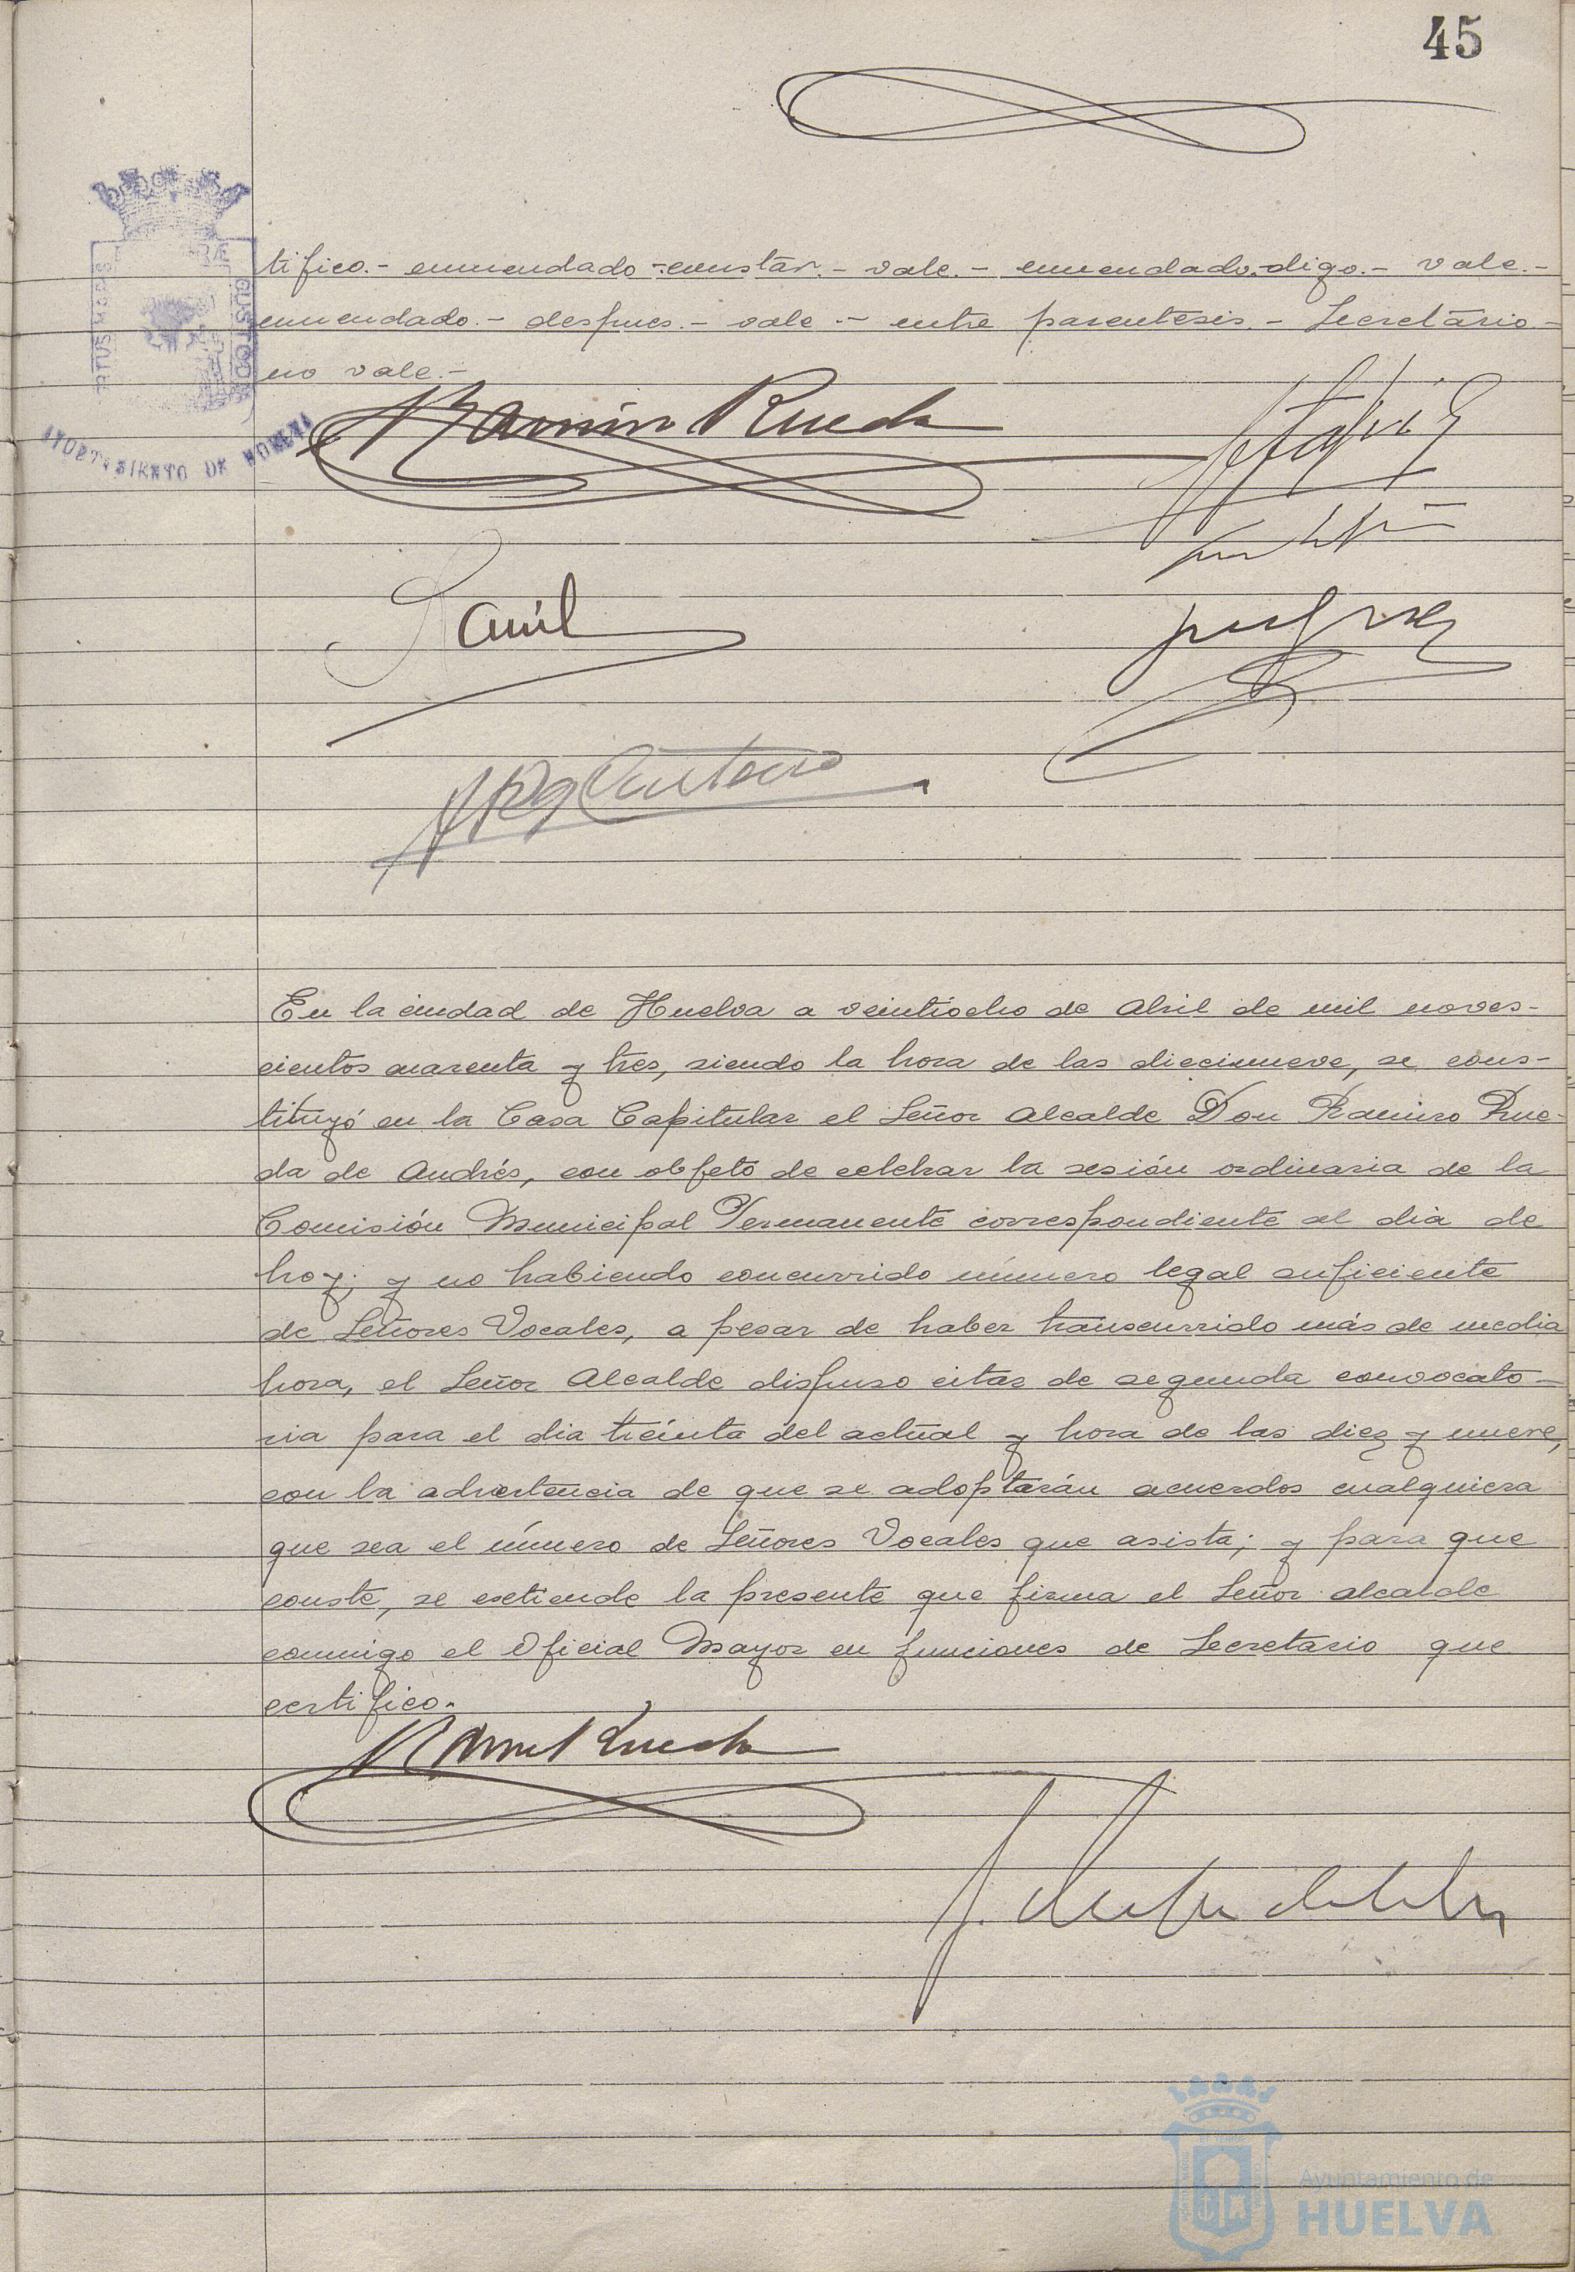 45
tifico.- enmendado -constar.- vale.- enmendado.-digo.- vale.-
enmendado.- despues.- vale.- entre parentesis.- Secretario.-
no vale.-
Ramiro Rueda
AYUNTAMIENTO DE HUELVA
En la ciudad de Huelva a veintiocho de Abril de mil noves-
cientos cuarenta y tres, siendo la hora de las diecinueve, se cons-
tituyó en la Casa Capitular el Señor Alcalde Don Ramiro Rue-
da de Andrés, con objeto de celebrar la sesión ordinaria de la
Comisión Municipal Permanente correspondiente al dia de
hoy; y no habiendo concurrido número legal suficiente
de Señores Vocales, a pesar de haber transcurrido más de media
hora, el Señor Alcalde dispuso citar de segunda convocato-
ria para el dia treinta del actual y hora de las diez y nueve,
con la advertencia de que se adoptarán acuerdos cualquiera
que sea el número de Señores Vocales que asista; y para que
conste, se extiende la presente que firma el Señor Alcalde
conmigo el Oficial Mayor en funciones de Secretario que
certifico.
Ramiro Rueda
Ayuntamiento de
HUELVA